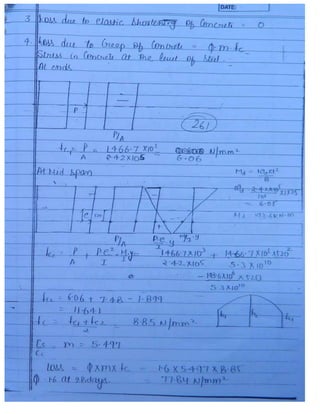 DATE:
3. Loss due to Elastic Shortening of Concrete = 0
4. Loss due to Creep of Concrete = ϕ m fc
Stress in Concrete at the level of Steel.
At ends
P
P/A
261
fc1 = P/A = 1466.7×10³/2.42×10⁵ = 6.06 N/mm²
At Mid span
P/A
fc2 = P/A + Pe²/I - M y/I = 1466.7×10³/2.42×10⁵ + 1466.7×10³×520²/5.3×10¹⁰
- 193.6×10⁶×520/5.3×10¹⁰
fc2 = 6.06 + 7.48 - 1.899
= 11.641
fc = fc1+fc2/2 = 8.85 N/mm²
Es/Ec = m = 5.497
loss = ϕ×m×fc = 1.6×5.497×8.85
ϕ 1.6 at 28 days = 77.84 N/mm²